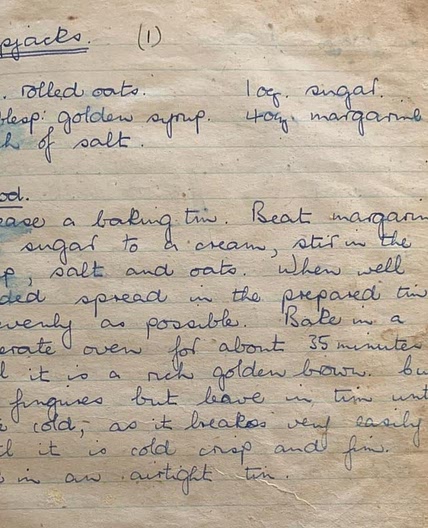 pjacks. (1)
. rolled oats. 1 oz. sugar.
blesp: golden syrup. 4 oz. margarine
h of salt.
od.
ease a baking tin. Beat margarin
sugar to a cream, stir in the
p, salt and oats. When well
ded spread in the prepared tin
evenly as possible. Bake in a
erate oven for about 35 minutes
l it is a rich golden brown. Cu
fingures but leave in tin unt
cold, as it breakes very easily
il it is cold crisp and firm.
in an airtight tin.